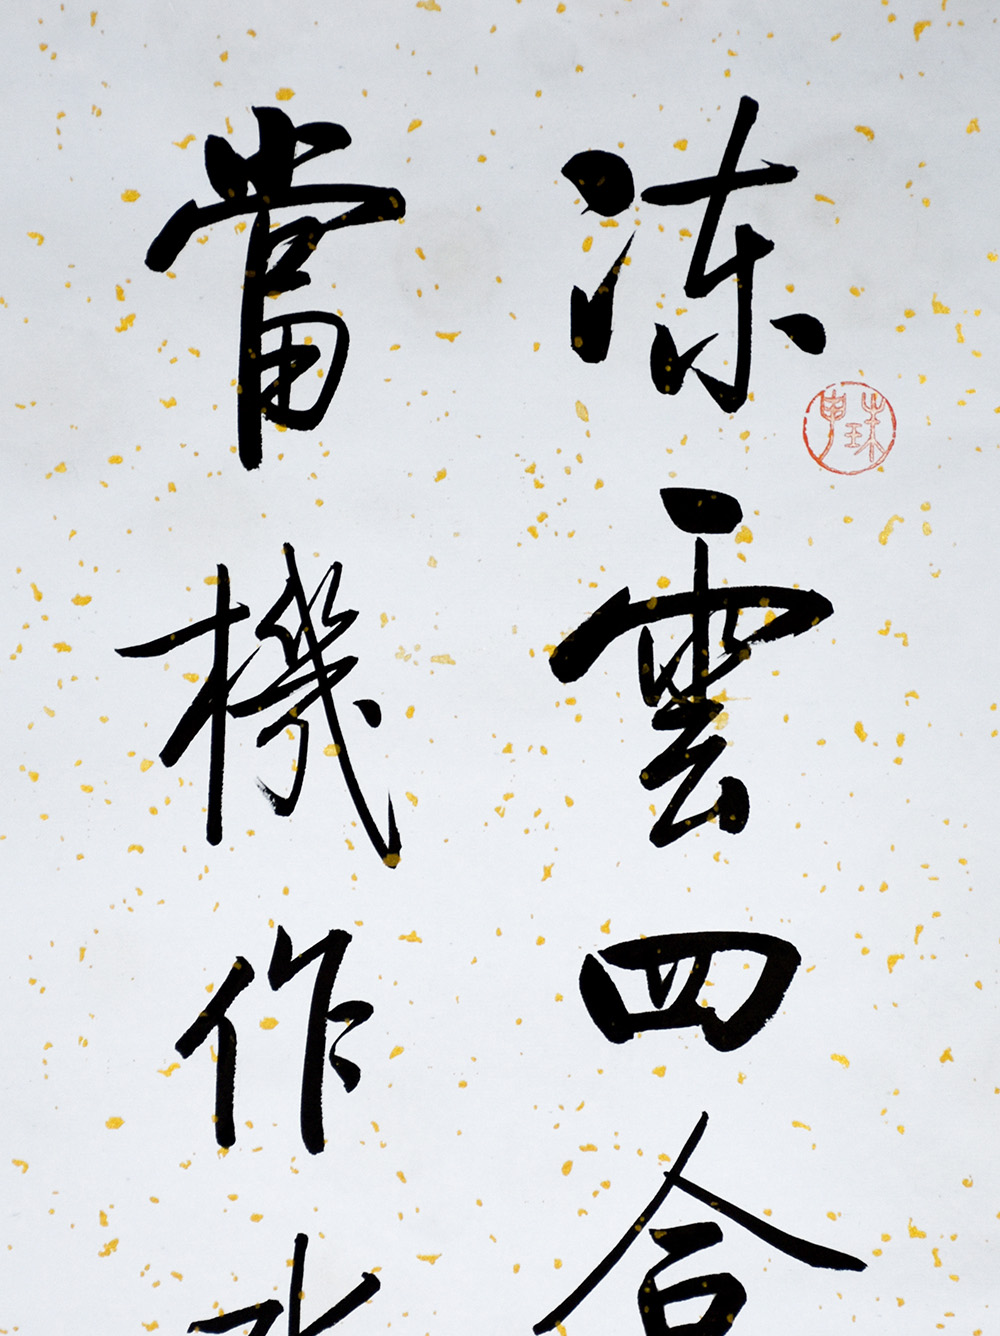 凍雲四合
當機作水